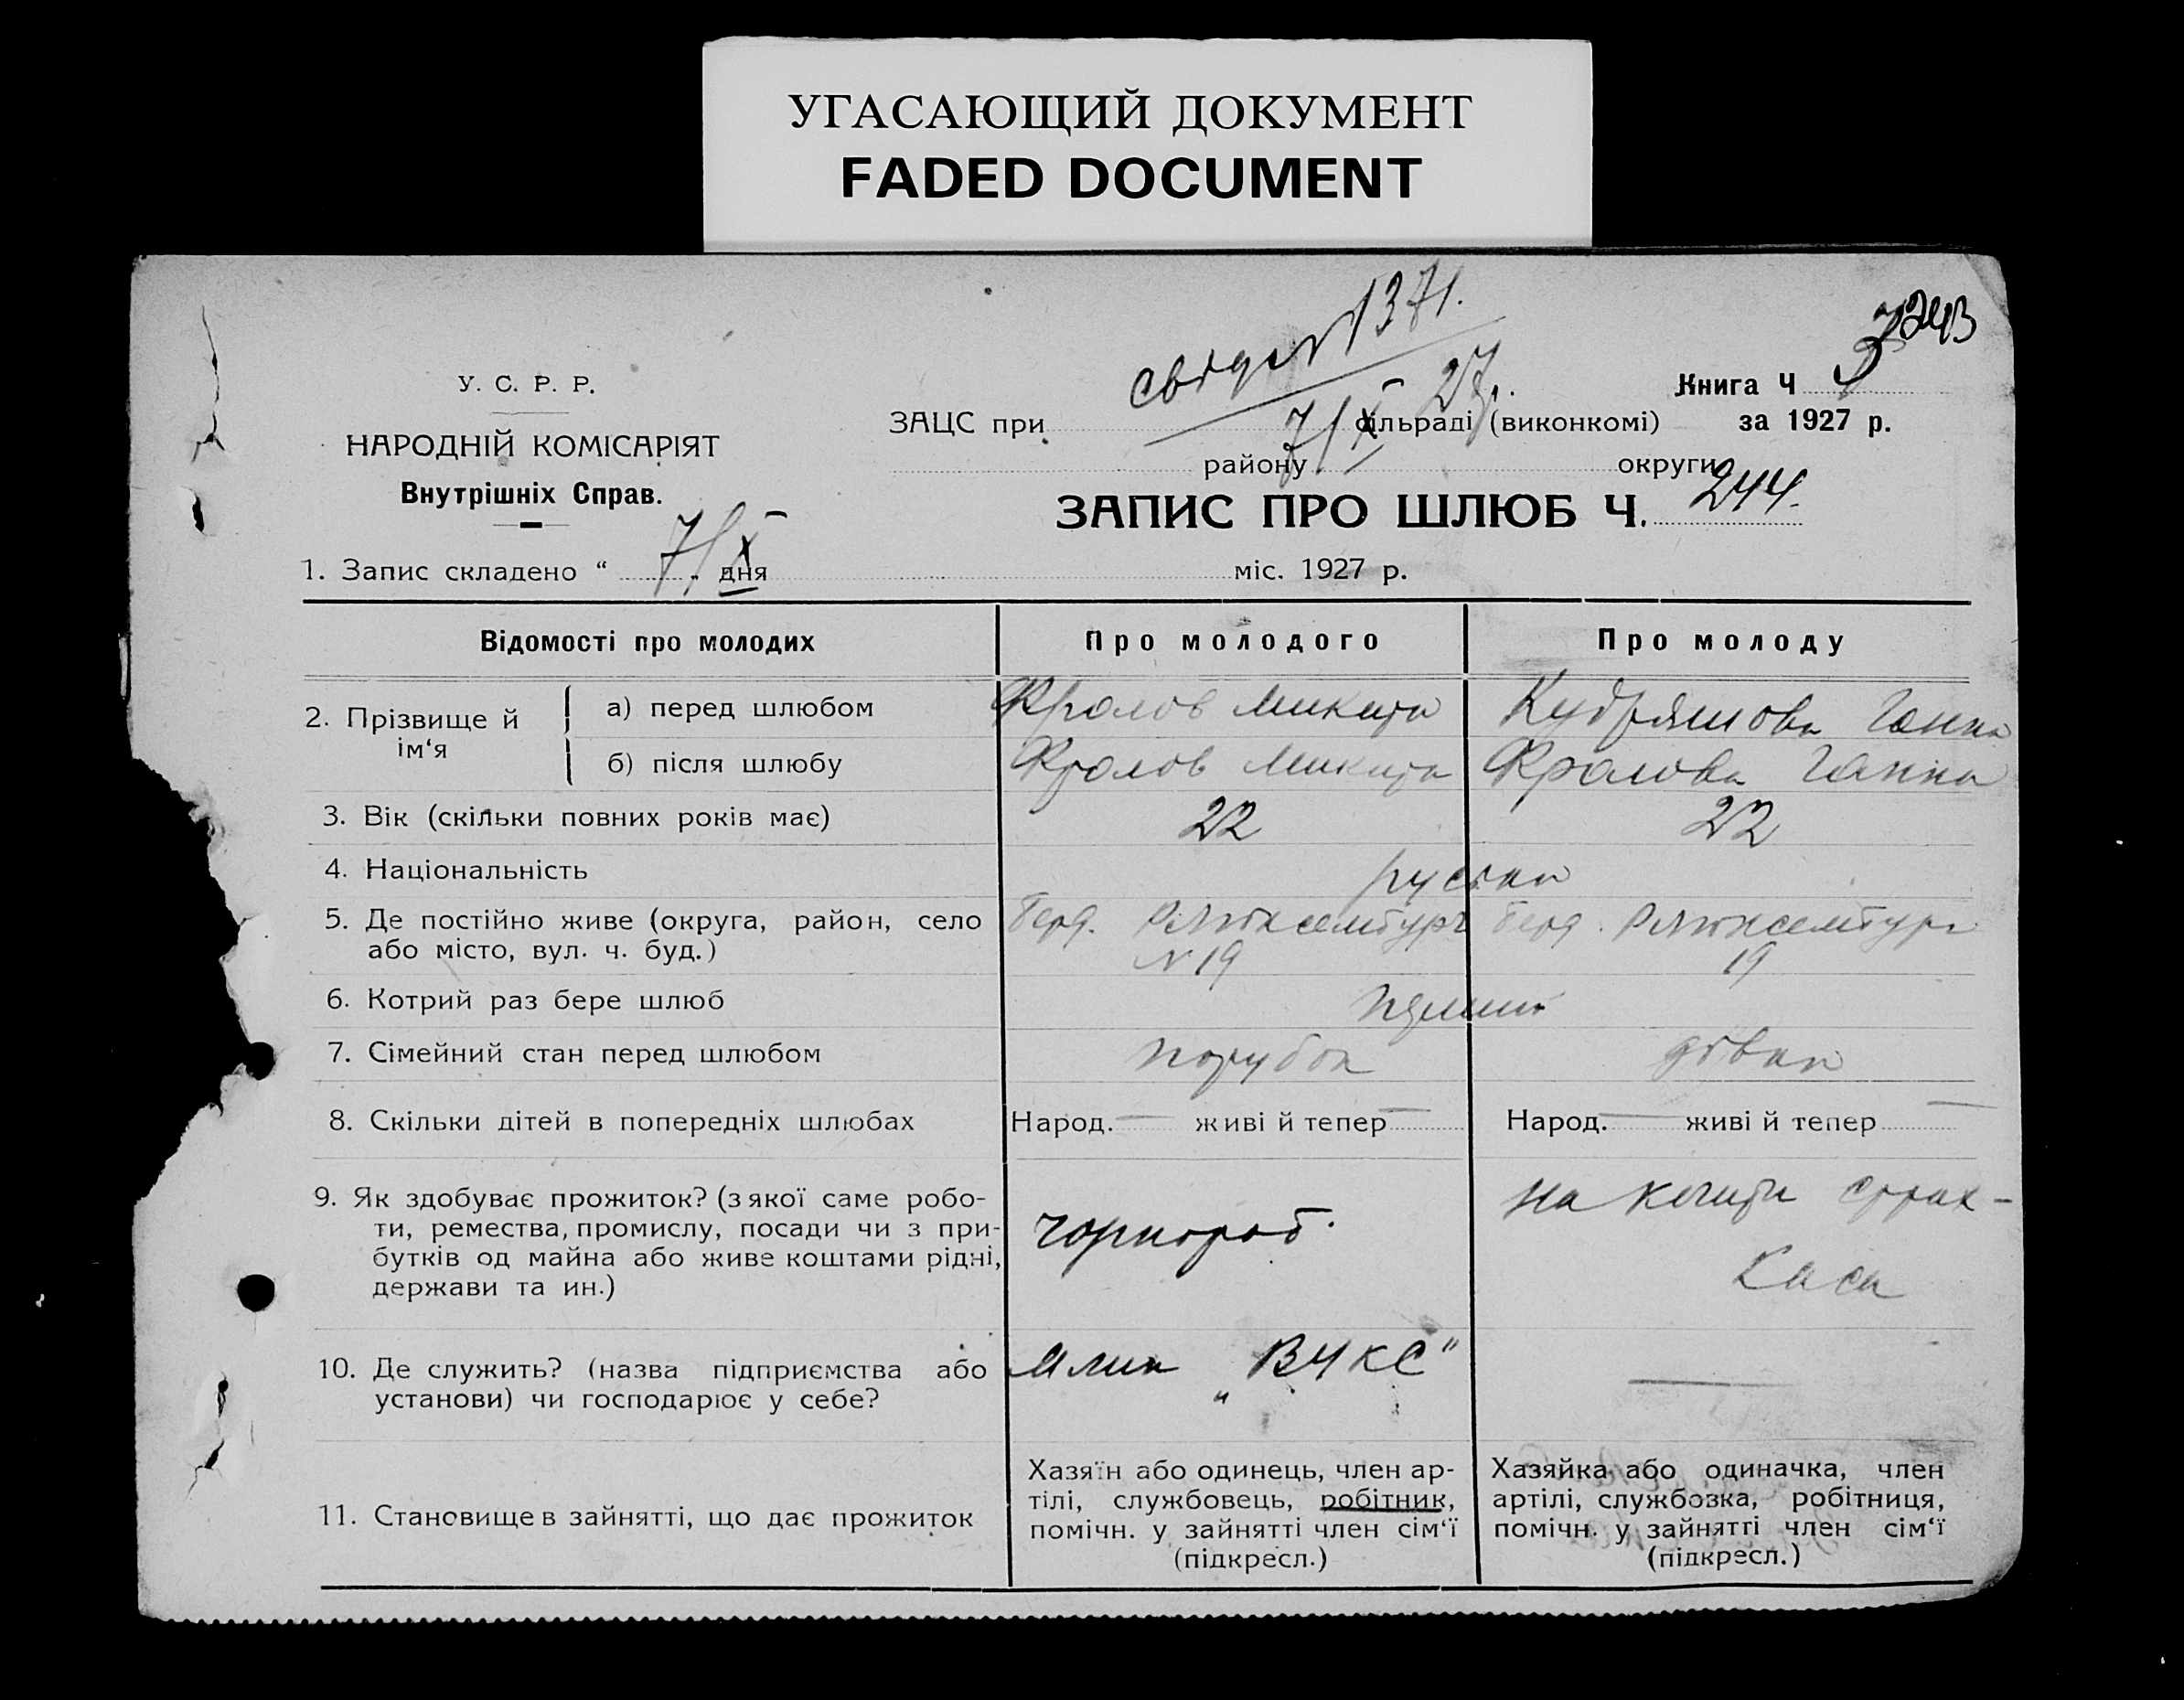 УГАСАЮЩИЙ ДОКУМЕНТ
FADED DOCUMENT
1371.
7/X 27р.
У. С. Р. Р.
НАРОДНІЙ КОМІСАРІЯТ
Внутрішніх Справ.
Книга Ч
ЗАЦС при сільраді (виконкомі) за 1927 р.
району округи
ЗАПИС ПРО ШЛЮБ Ч. 244.
1. Запис складено “ 7/X „ дня міс. 1927 р.
Відомості про молодих Про молодого Про молоду
2. Прізвище й ім‘я
а) перед шлюбом Фролов Микита Кудряшова Ганна
б) після шлюбу Фролов Микита Фролова Ганна
3. Вік (скільки повних років має) 22 22
4. Національність руська
5. Де постійно живе (округа, район, село Берд. Р.Люксембург Берд. Р.Люксембург
або місто, вул. ч. буд.) N 19 19
6. Котрий раз бере шлюб
7. Сімейний стан перед шлюбом парубок дівка
8. Скільки дітей в попередніх шлюбах Народ. — живі й тепер — Народ. — живі й тепер —
9. Як здобуває прожиток? (з якої саме робо-
ти, ремества, промислу, посади чи з при-
бутків од майна або живе коштами рідні,
держави та ин.)
чорнороб.
на кошти страх-
каси
10. Де служить? (назва підприємства або
установи) чи господарює у себе?
Млин „ВУКС“
—
11. Становище в зайнятті, що дає прожиток
Хазяїн або одинець, член ар-
тілі, службовець, робітник,
помічн. у зайнятті член сім‘ї
(підкресл.)
Хазяйка або одиначка, член
артілі, службовка, робітниця,
помічн. у зайнятті член сім‘ї
(підкресл.)